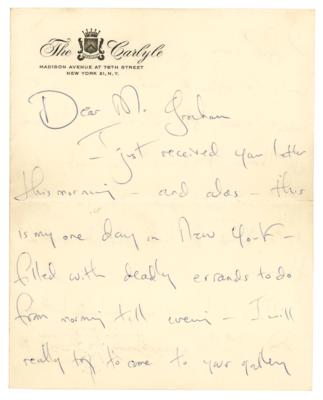 The Carlyle
MADISON AVENUE AT 76TH STREET
NEW YORK 21, N.Y.
Dear Mr. Graham
– I just received your letter
this morning – and alas – this
is my one day in New York –
filled with deadly errands to do
from morning till evening – I will
really try to come to your gallery